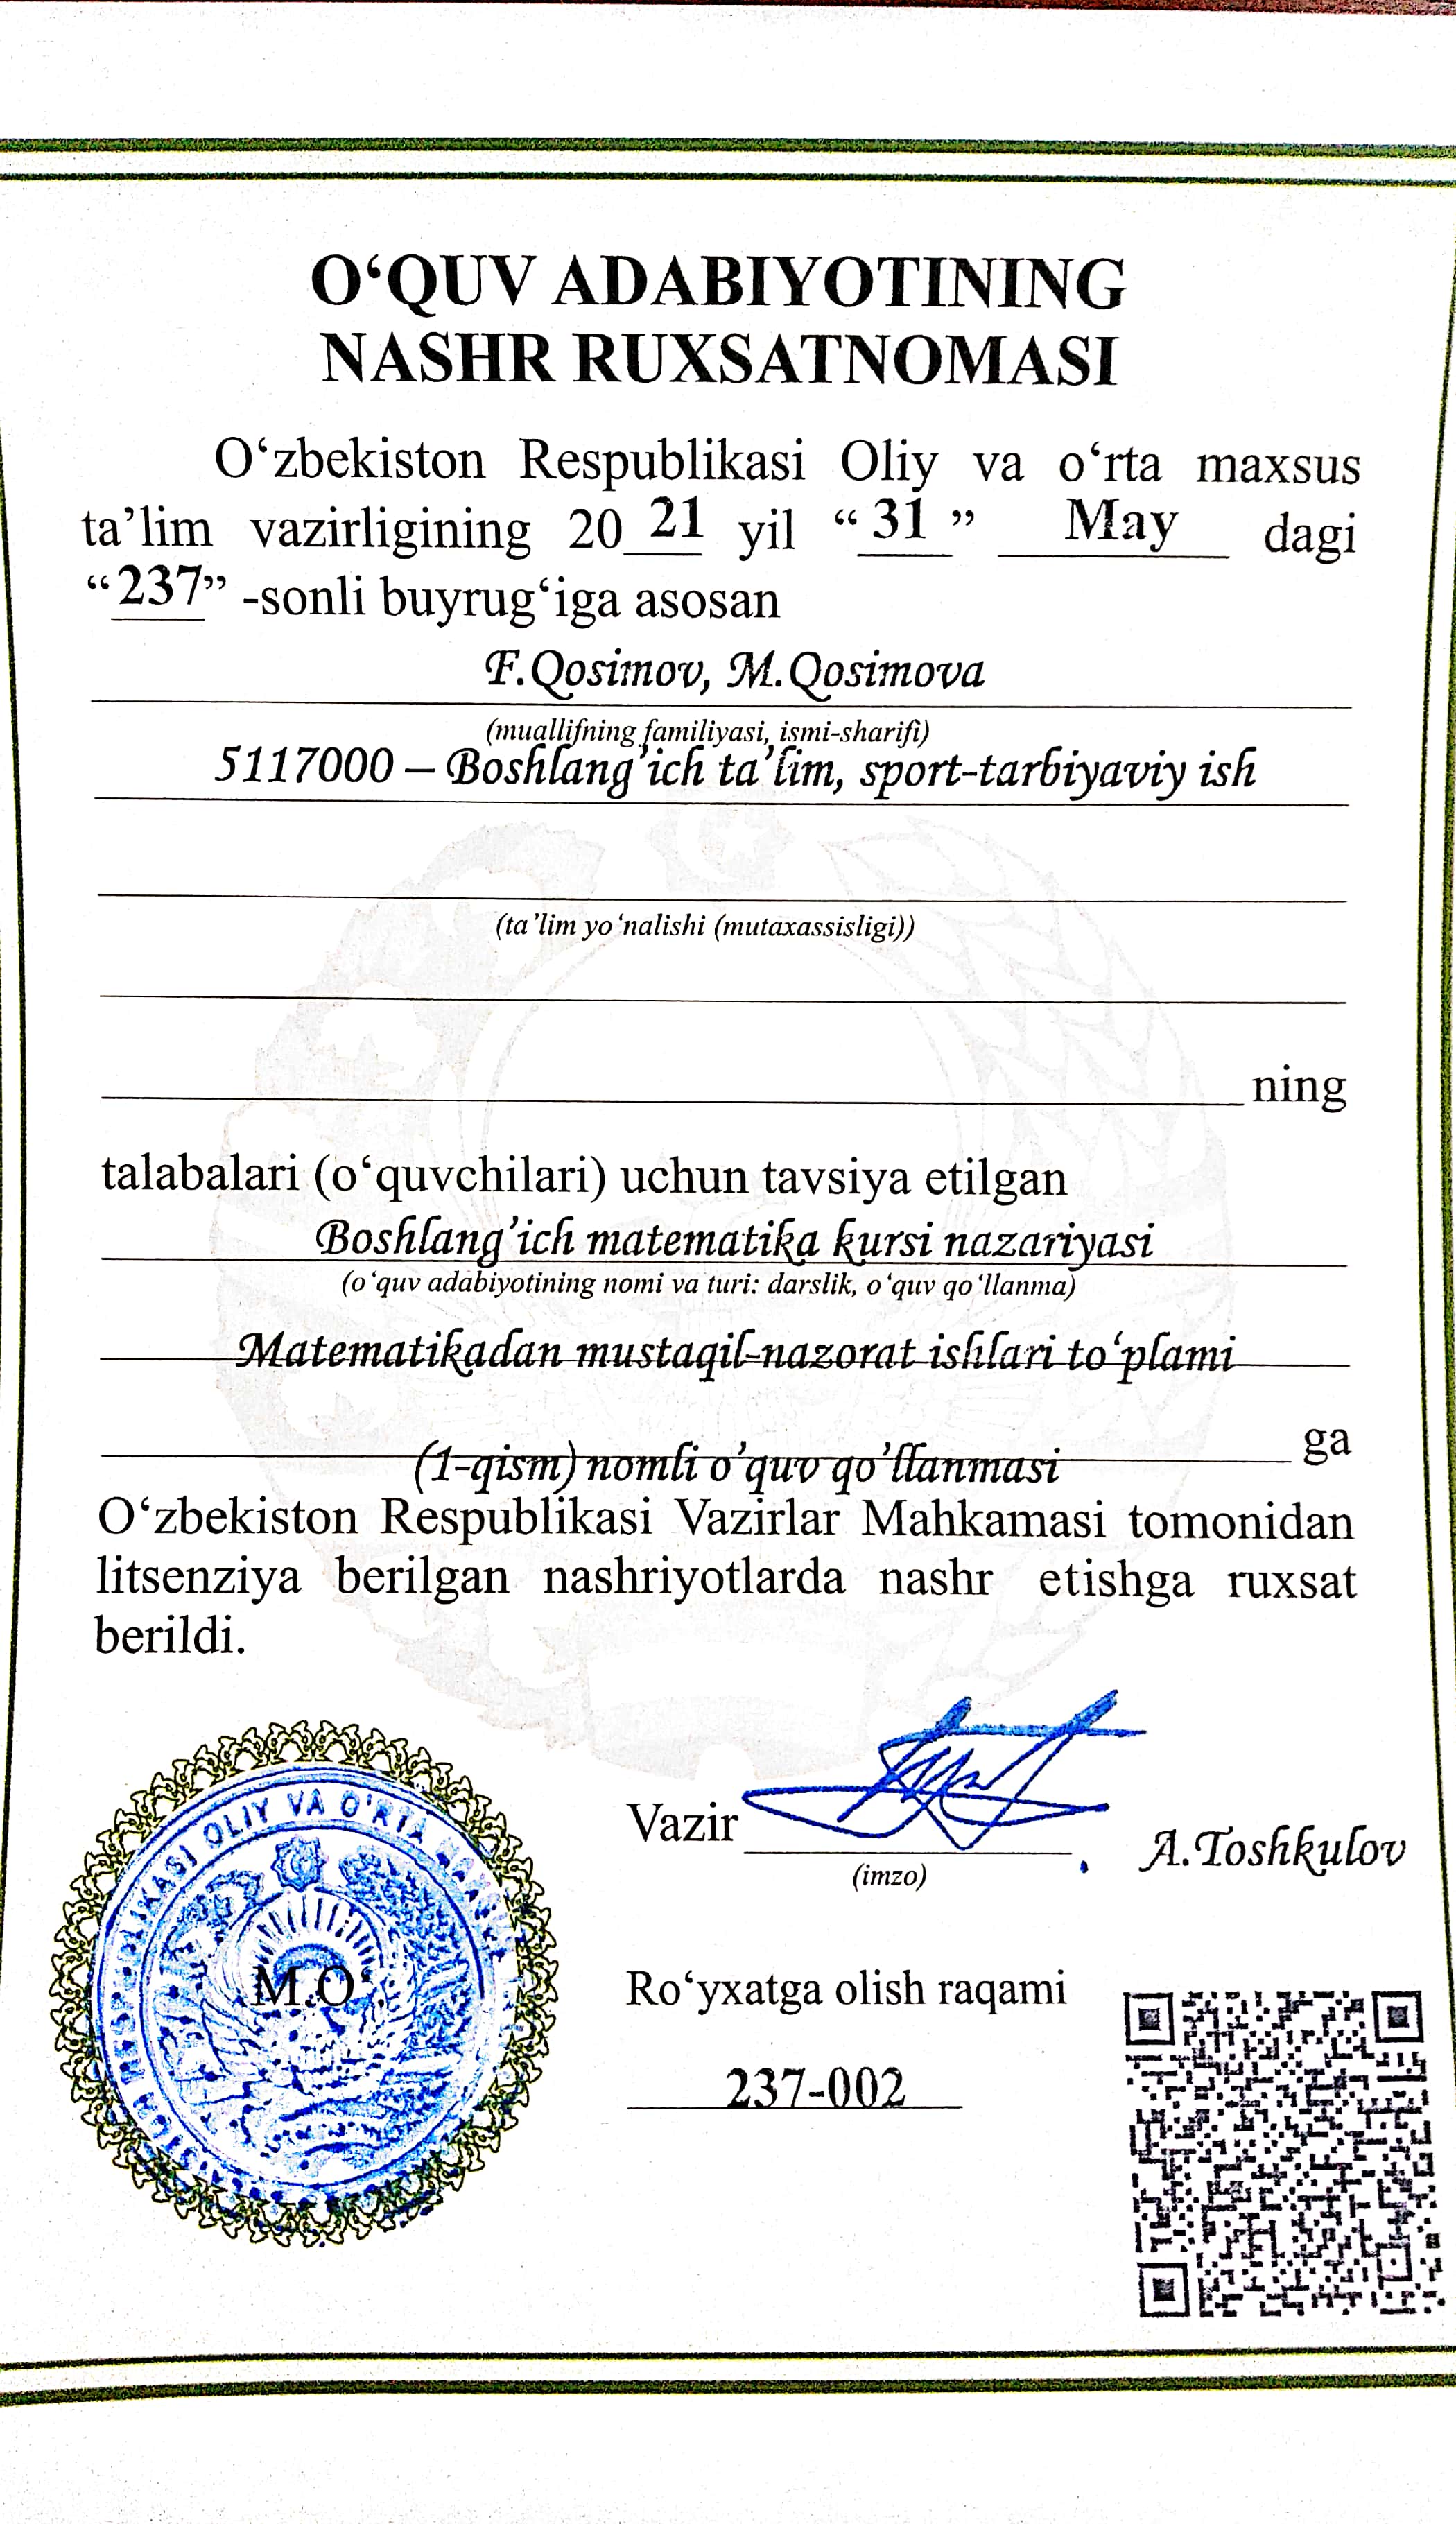 O‘QUV ADABIYOTINING
NASHR RUXSATNOMASI
O‘zbekiston Respublikasi Oliy va o‘rta maxsus
ta’lim vazirligining 20 21 yil “ 31 ” May dagi
“237” -sonli buyrug‘iga asosan
F.Qosimov, M.Qosimova
(muallifning familiyasi, ismi-sharifi)
5117000 – Boshlang’ich ta’lim, sport-tarbiyaviy ish
(ta’lim yo‘nalishi (mutaxassisligi))
ning
talabalari (o‘quvchilari) uchun tavsiya etilgan
Boshlang’ich matematika kursi nazariyasi
(o‘quv adabiyotining nomi va turi: darslik, o‘quv qo‘llanma)
Matematikadan mustaqil-nazorat ishlari to‘plami
(1-qism) nomli o’quv qo’llanmasi ga
O‘zbekiston Respublikasi Vazirlar Mahkamasi tomonidan
litsenziya berilgan nashriyotlarda nashr etishga ruxsat
berildi.
Vazir A.Toshkulov
(imzo)
OLIY VA O‘RTA
M.O‘.
Ro‘yxatga olish raqami
237-002